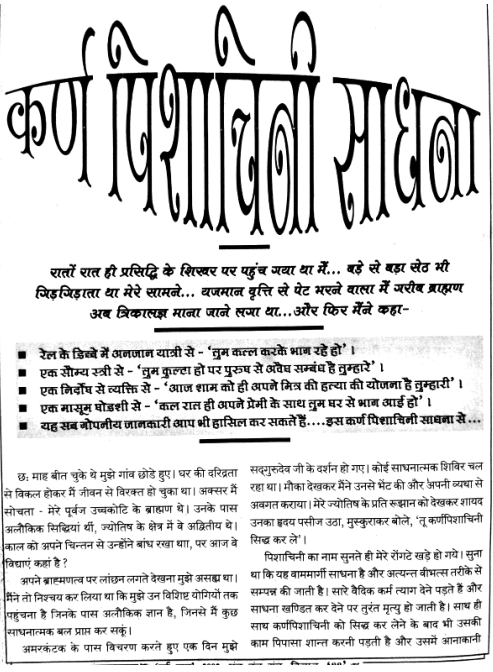 कर्ण पिशाचिनी साधना
रातों रात ही प्रसिद्धि के शिखर पर पहुंच गया था मैं... बड़े से बड़ा सेठ भी
गिड़गिड़ाता था मेरे सामने... यजमान वृत्ति से पेट भरने वाला मैं गरीब ब्राह्मण
अब त्रिकालज्ञ माना जाने लगा था...और फिर मैंने कहा-
■ रेल के डिब्बे में अनजान यात्री से - 'तुम कत्ल करके भाग रहे हो' ।
■ एक सौम्य स्त्री से - 'तुम कुल्टा हो पर पुरुष से अवैध सम्बंध है तुम्हारे' ।
■ एक निर्दोष से व्यक्ति से - 'आज शाम को ही अपने मित्र की हत्या की योजना है तुम्हारी' ।
■ एक मासूम षोडशी से - 'कल रात ही अपने प्रेमी के साथ तुम घर से भाग आई हो' ।
■ यह सब गोपनीय जानकारी आप भी हासिल कर सकते हैं....इस कर्ण पिशाचिनी साधना से...
छः माह बीत चुके थे मुझे गांव छोडे हुए। घर की दरिद्रता
से विकल होकर मैं जीवन से विरक्त हो चुका था। अक्सर मैं
सोचता - मेरे पूर्वज उच्चकोटि के ब्राह्मण थे। उनके पास
अलौकिक सिद्धियां थीं, ज्योतिष के क्षेत्र में वे अद्वितीय थे।
काल को अपने चिन्तन से उन्होंने बांध रखा थाा, पर आज वे
विद्याएं कहां है ?
अपने ब्राह्मणत्व पर लांछन लगते देखना मुझे असह्य था।
मैंने तो निश्चय कर लिया था कि मुझे उन विशिष्ट योगियों तक
पहुंचना है जिनके पास अलौकिक ज्ञान है, जिनसे मैं कुछ
साधनात्मक बल प्राप्त कर सकूं।
अमरकंटक के पास विचरण करते हुए एक दिन मुझे
सद्गुरुदेव जी के दर्शन हो गए। कोई साधनात्मक शिविर चल
रहा था। मौका देखकर मैंने उनसे भेंट की और अपनी व्यथा से
अवगत कराया। मेरे ज्योतिष के प्रति रूझान को देखकर शायद
उनका हृदय पसीज उठा, मुस्कुराकर बोले, 'तू कर्णपिशाचिनी
सिद्ध कर ले'।
पिशाचिनी का नाम सुनते ही मेरे रोंगटे खड़े हो गये। सुना
था कि यह वाममार्गी साधना है और अत्यन्त वीभत्स तरीके से
सम्पन्न की जाती है। सारे वैदिक कर्म त्याग देने पड़ते हैं और
साधना खण्डित कर देने पर तुरंत मृत्यु हो जाती है। साथ ही
साथ कर्णपिशाचिनी को सिद्ध कर लेने के बाद भी उसकी
काम पिपासा शान्त करनी पड़ती है और उसमें आनाकानी